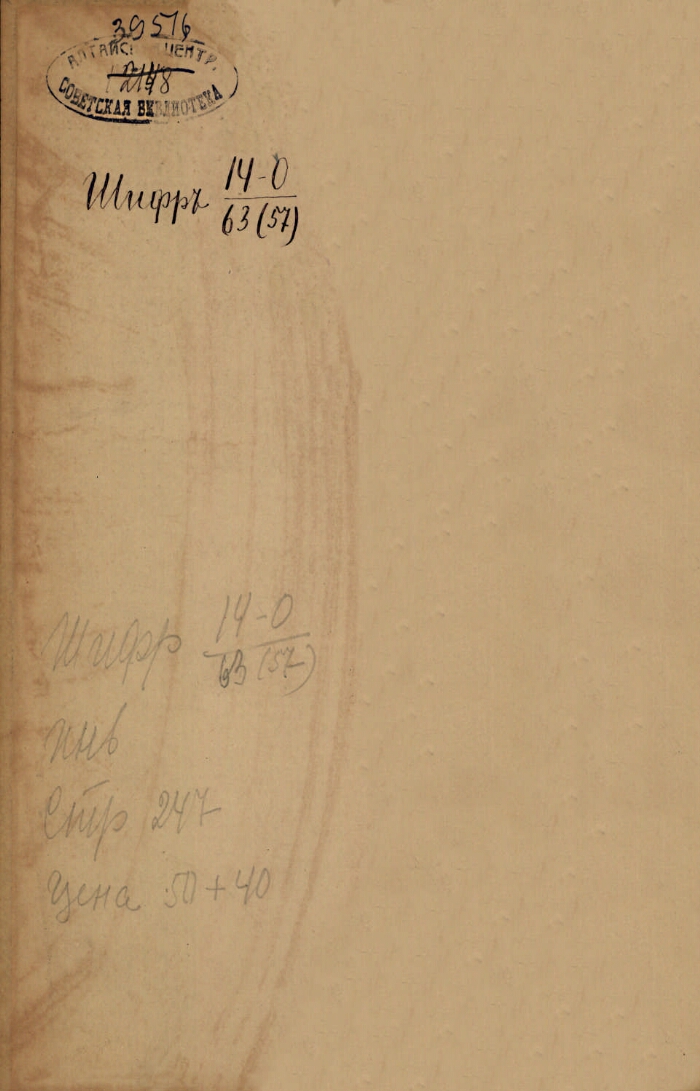 39516
АЛТАЙС ЦЕНТР.
2148
СОВЕТСКАЯ БИБЛИОТЕКА
Шифръ 14-0
63 (57)
Шифр 14-0
63 (57)
инв
Стр 247
Цена 50 + 40